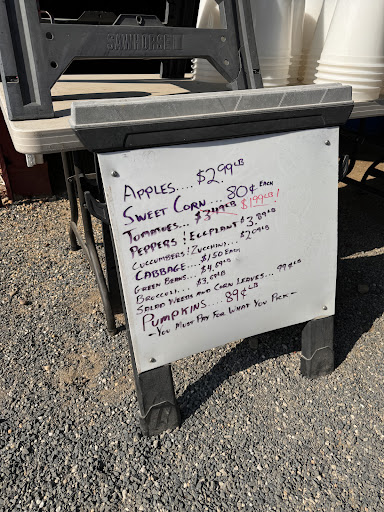 SAWHORSE
APPLES.... $2.99 LB
SWEET CORN... 80¢ EACH
TOMATOES... $3.49 LB $1.99 LB!
PEPPERS ! EGGPLANT $3.89 LB
CUCCUMBERS ! ZUCCHINI... $2.09 LB
CABBAGE... $1.50 EACH
GREEN BEANS... $4.69 LB
BROCCOLI... $3.69 LB
SALAD WEEDS AND CORN LEAVES... 99¢ LB
PUMPKINS.... 89¢ LB
-YOU MUST PAY FOR WHAT YOU PICK-